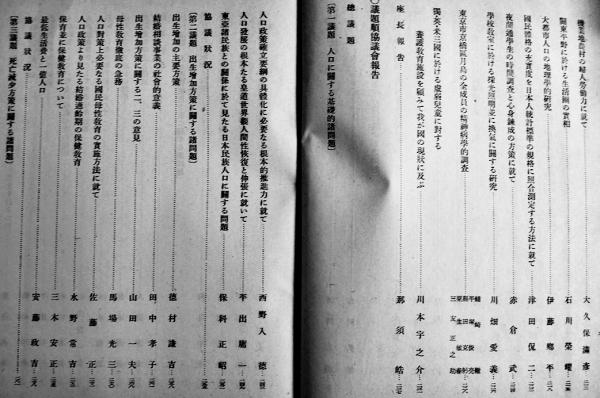 機業地農村の婦人勞動力に就て 大久保滿彦
關東平野に於ける生活圈の實相 石川榮耀
大都市人口の地理學的研究 伊藤郷平
國民體格の充實度を日本人統計標準の規格に照合測定する方法に就て 津田侃二
夜間通學生の時間調査と心身錬成の方策に就て 赤倉武
學校教室に於ける採光照明並に換氣に關する研究 川畑愛義
東京市京橋區月島の全成員の精神病學的調査
獨英米三國に於ける虚弱兒童に對する
養護教育施設を顧みて我が國の現狀に及ぶ 川本宇之介
座長報告 那須皓
〇議題順協議會報告
總議題
(第一議題 人口に關する基礎的諸問題)
人口政策確立要綱の具體化に必要なる根本的推進力に就て 西野入德
人口發展の根本たる皇道世界觀人間性恢復と伸張に就いて 平出
東亞諸民族との關係に於て見たる日本民族人口に關する問題 保科正昭
協議狀況
(第二議題 出生增加方策に關する諸問題)
出生增加の主要方策 德村謙吉
結婚相談事業の社會的意義 田中孝子
出生增加方策に關する二、三の意見 山田一夫
母性教育徹底の急務 馬場光三
人口對策上必要なる國民母性教育の實施方法に就て 佐藤正
人口政策より見たる結婚適齡期の保健教育 水野常吉
保育並に保健教育について 三木安正
最低生活費と一億人口 安藤政吉
協議狀況
(第三議題 死亡減少方策に關する諸問題)